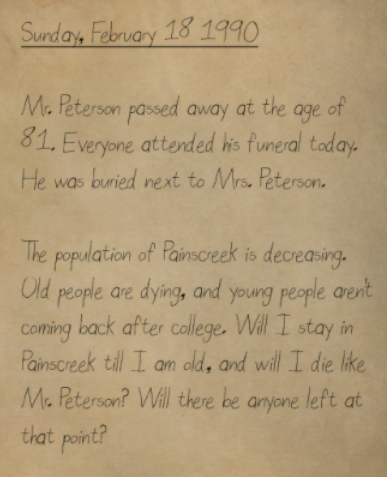 Sunday, February 18 1990
Mr. Peterson passed away at the age of
81. Everyone attended his funeral today.
He was buried next to Mrs. Peterson.
The population of Painscreek is decreasing.
Old people are dying, and young people aren't
coming back after college. Will I stay in
Painscreek till I am old, and will I die like
Mr. Peterson? Will there be anyone left at
that point?